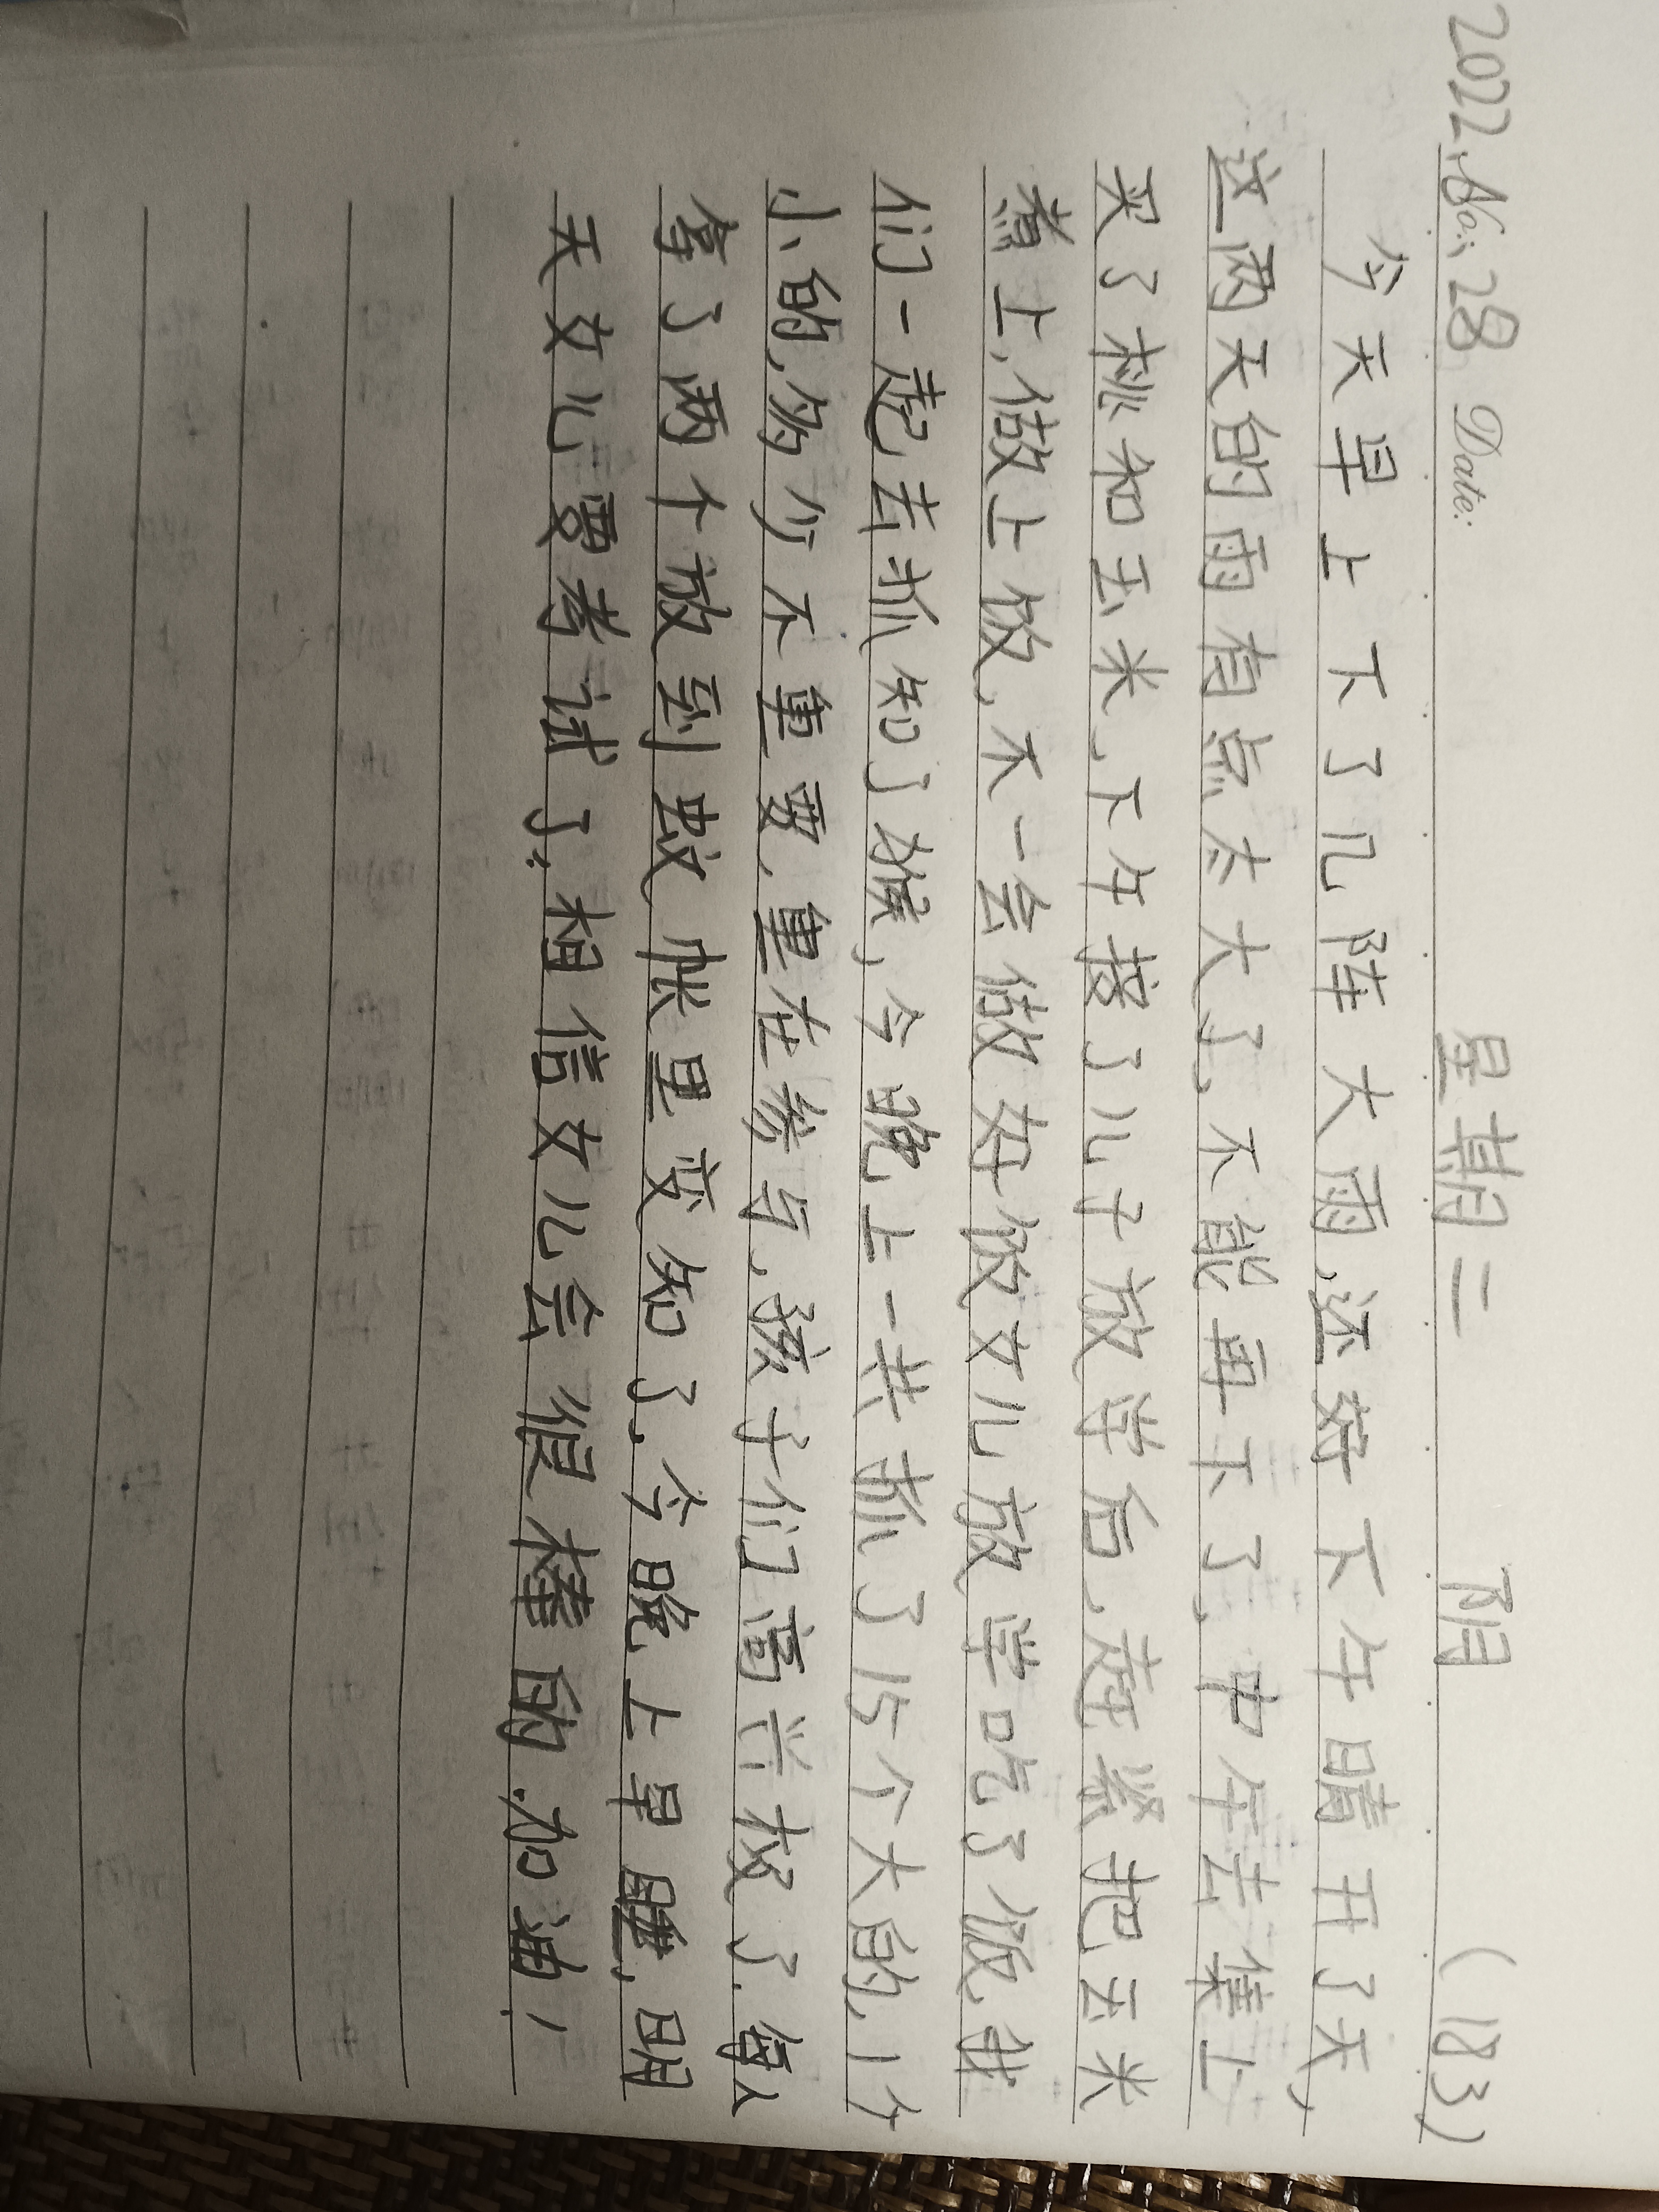 2022.No:6.28 Date: 星期二 阴 (183)
今天早上下了几阵大雨,还好下午晴开了天,
这两天的雨有点太大了,不能再下了,中午去集上
买了桃和玉米,下午接了儿子放学后,赶紧把玉米
煮上,做上饭,不一会做好饭女儿放学吃了饭,我
们一起去抓知了猴,今晚上一共抓了15个大的,1个
小的,多少不重要,重在参与,孩子们高兴极了.每人
拿了两个放到蚊帐里变知了,今晚上早睡,明
天女儿要考试了,相信女儿会很棒的.加油!